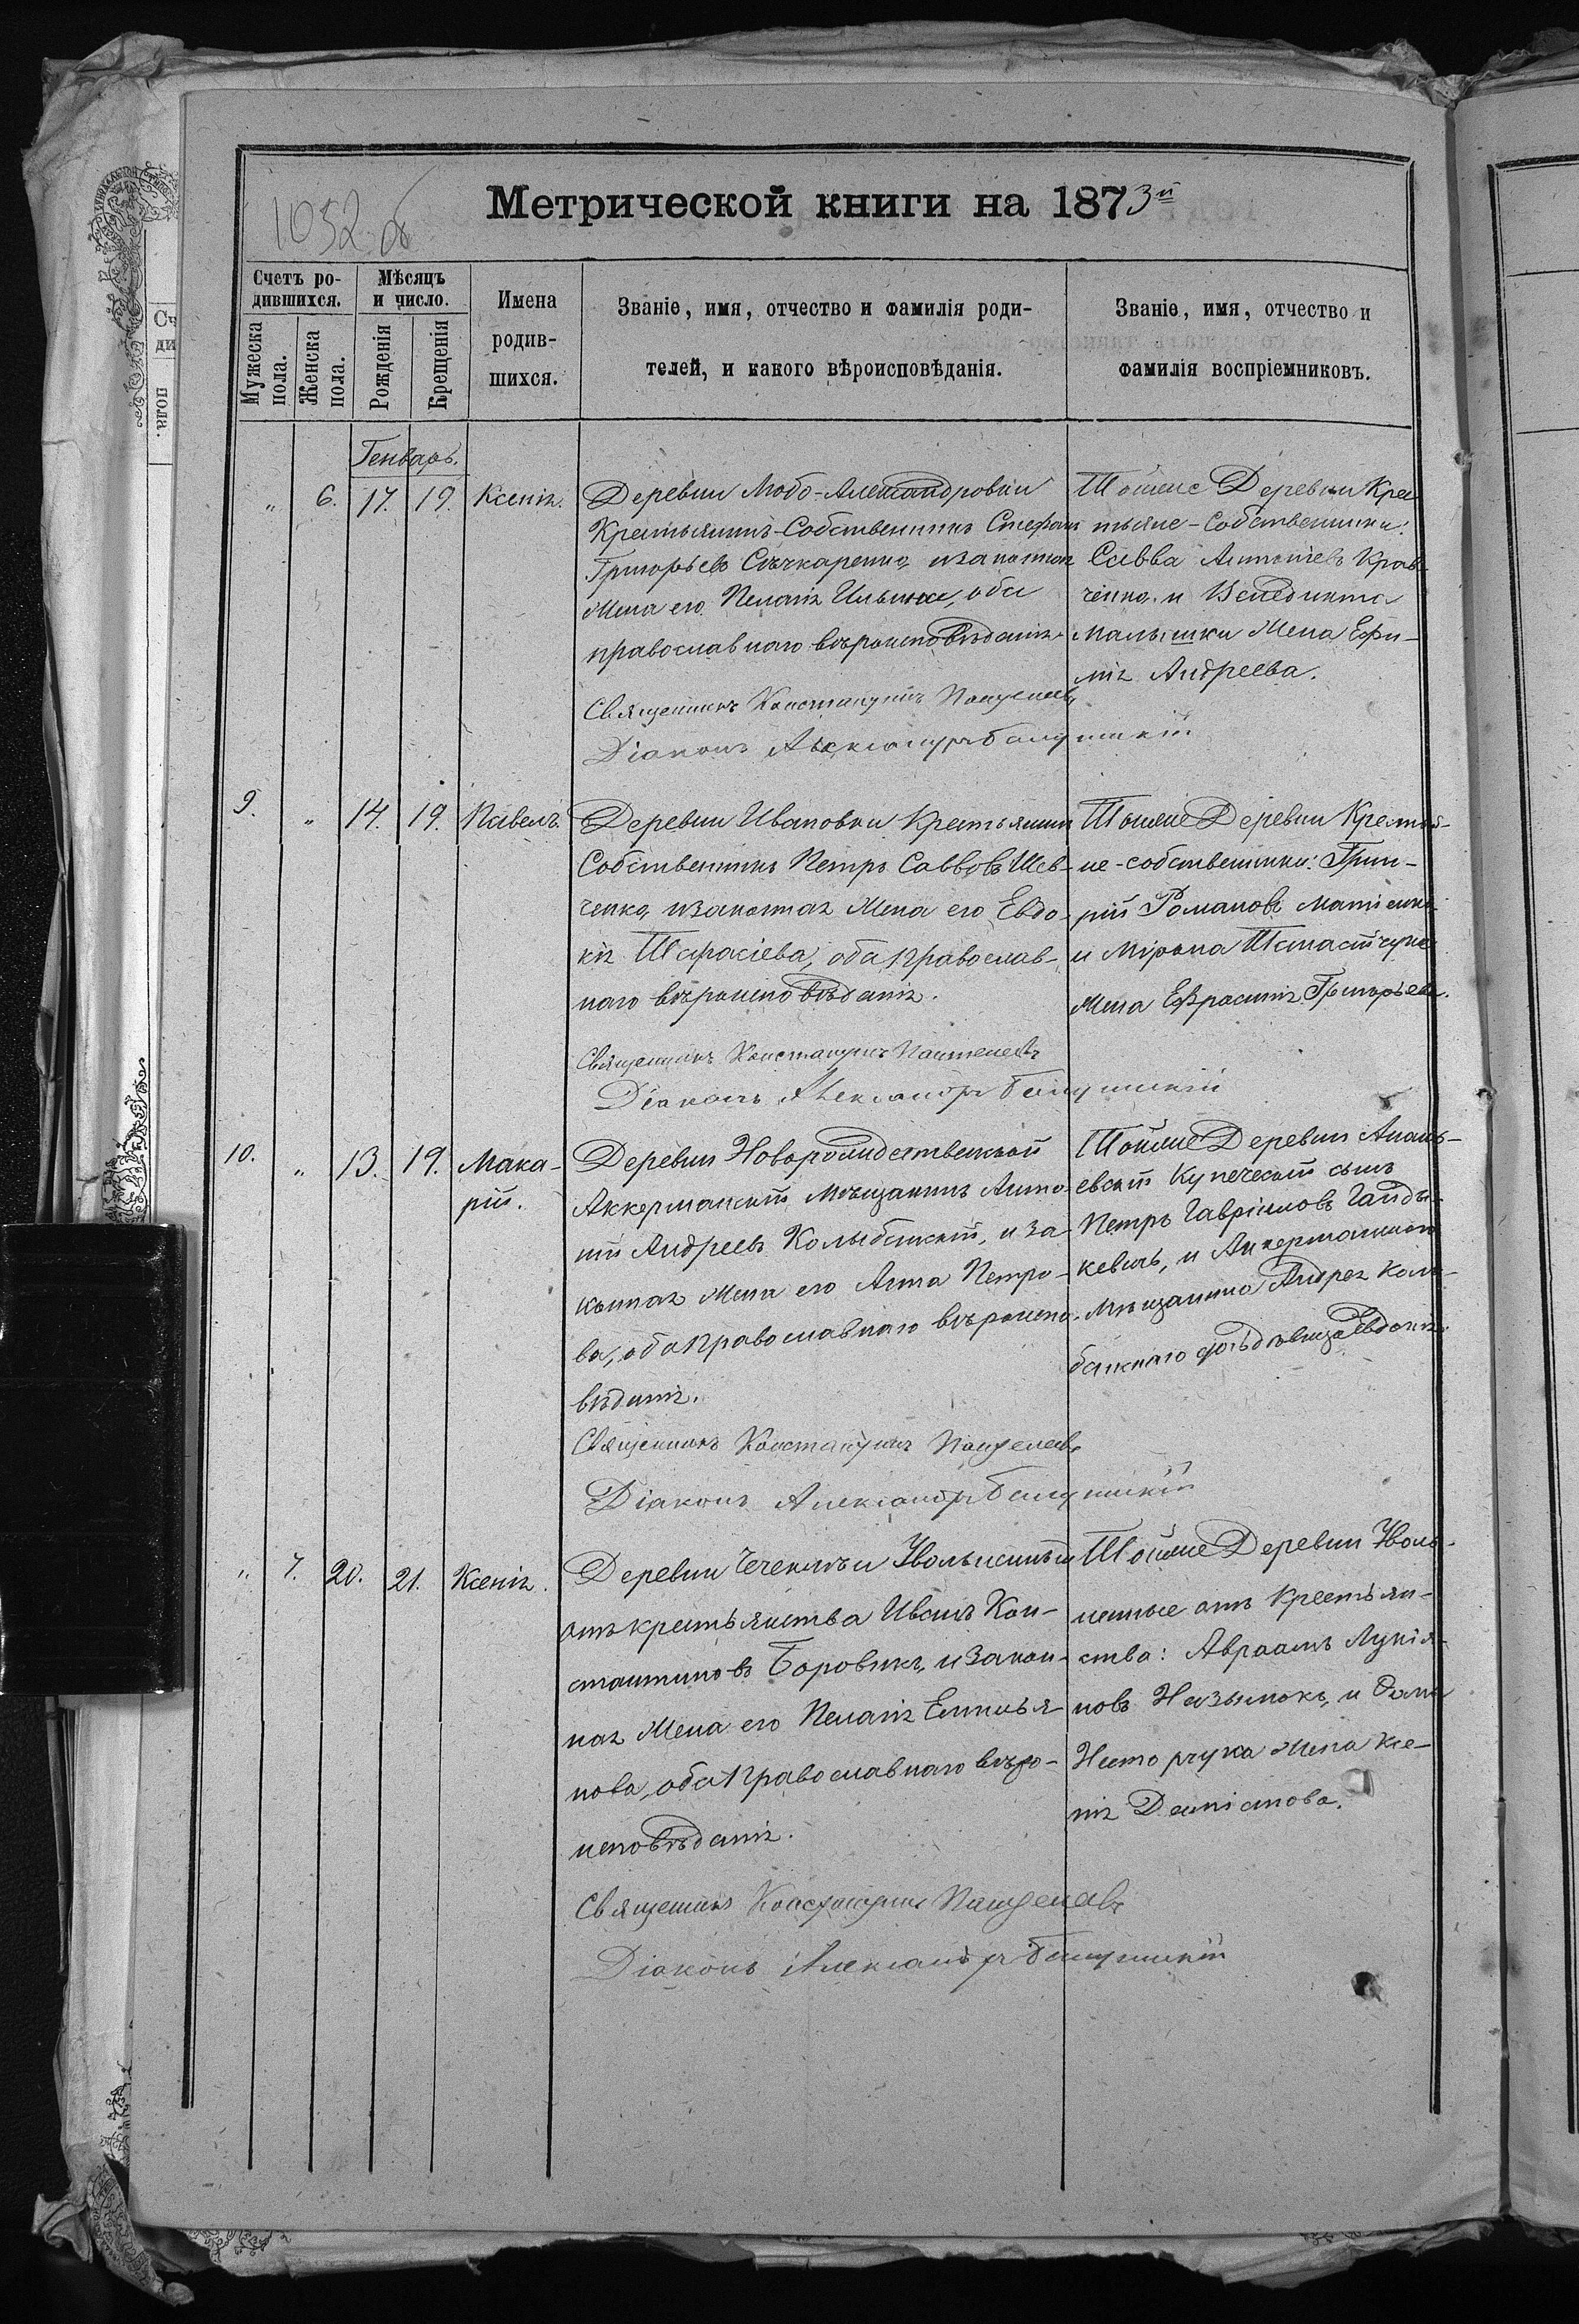 1052 об
Метрической книги на 1873й
Счетъ ро-
дившихся.
Мѣсяцъ
и число.
Имена
родив-
шихся.
Званіе, имя, отчество и фамилія роди-
телей, и какого вѣроисповѣданія.
Званіе, имя, отчество и
фамилія воспріемниковъ.
Мужеска
пола.
Женска
пола.
Рожденія
Крещенія
Генварь.
" 6. 17. 19. Ксенія.
Деревни Любо-Александровки
Крестьянинъ-Собственникъ Стефанъ
Григорьевъ Сѣчкаренко, и законная
Жена его Пелагія Ильина, оба
православнаго вѣроисповѣданія.
Священникъ Константинъ
Діаконъ Александръ
Тойже Деревни Крес
тьяне-Собственники:
Савва Антоніевъ Крав-
ченко, и Венедикта
Малышки Жена Ефи-
мія Андреева.
9. " 14. 19. Павелъ.
Деревни Ивановки Крестьянинъ
Собственникъ Петръ Саввовъ Шев-
ченко, и законная Жена его Евдо-
кія Тарасіева, оба православ-
наго вѣроисповѣданія.
Священникъ Константинъ
Діаконъ Александръ
Тойже Деревни Крестья-
не-собственники: Григо-
рій Романовъ
и Мирона
Жена Ефросинія Григорьева.
10. " 13. 19. Мака-
рій.
Деревни Новорождественской
Аккерманскій Мѣщанинъ Анто-
ній Андреевъ Колыбанскій, и за-
конная Жена его Анна Петро-
ва, оба православнаго вѣроиспо-
вѣданія.
Священникъ Константинъ
Діаконъ Александръ
Тойже Деревни Анань-
евскій Купеческій сынъ
Петръ Гавріиловъ Гайды-
кевичъ, и Аккерманскаго
Мѣщанина Андрея Колы-
банскаго дочь дѣвица Евдокія.
" 7. 20. 21. Ксенія.
Деревни Чечельи Увольненный
отъ крестьянства Иванъ Кон-
стантиновъ Боровикъ, и закон-
ная Жена его Пелагія Емилья-
нова, оба православнаго вѣро-
исповѣданія.
Священникъ Константинъ
Діаконъ Александръ
Тойже Деревни Уволь-
ненные отъ Крестьян-
ства: Авраамъ Лукія-
новъ Назынокъ, и Фомы
Несторчука Жена Ксе-
нія Даміанова.